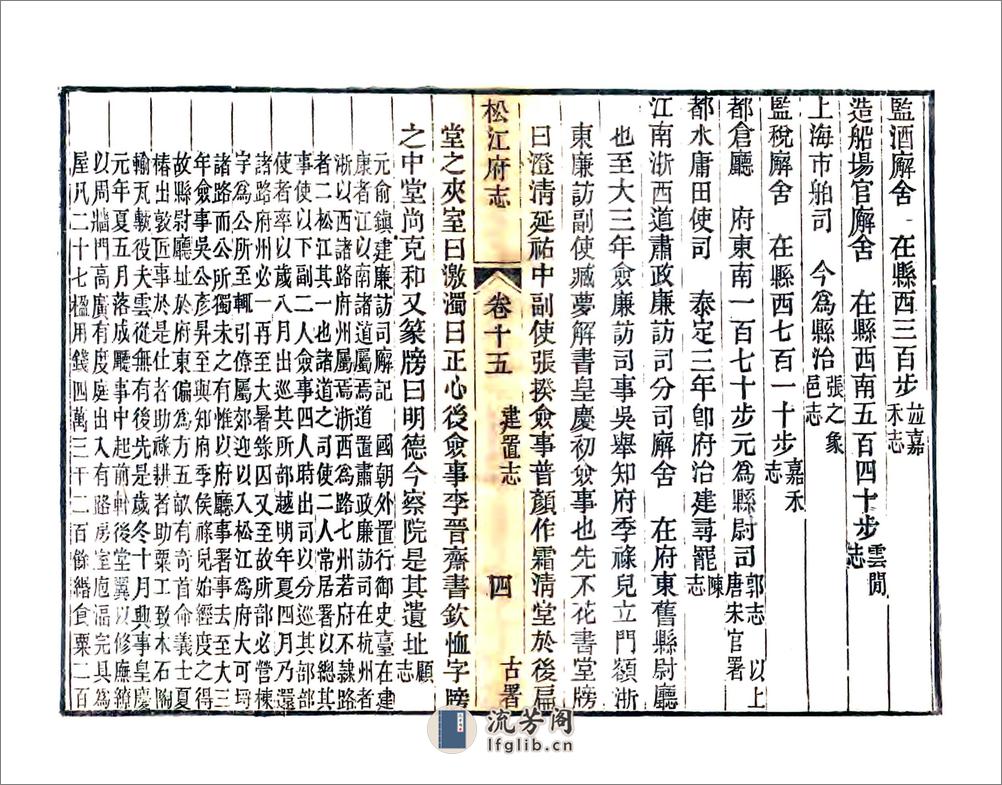 監酒廨舍 在縣西三百步 並嘉禾志
造船場官廨舍 在縣西南五百四十步 雲間志
上海市舶司 今爲縣治 張之象邑志
監稅廨舍 在縣西七百一十步 嘉禾志
都倉廳 府東南一百七十步元爲縣尉司 郭志 以上唐宋官署
都水庸田使司 泰定三年卽府治建尋罷 陳志
江南浙西道肅政廉訪司分司廨舍 在府東舊縣尉廳
也至大三年僉廉訪司事吳舉知府季祿兒立門額浙
東廉訪副使臧夢解書皇慶初僉事也先不花書堂牓
曰澄清延祐中副使張揆僉事普顏作霜清堂於後扁
松江府志 卷十五 建置志 四 古署
堂之夾室曰激濁曰正心後僉事李晉齋書欽恤字牓
之中堂尚克和又篆牓曰明德今察院是其遺址 顧志
元俞鎮建廉訪司廨記 國朝外置行御史臺在建
康者江以南諸道屬焉道置肅政廉訪司在杭州者
浙以西諸路府州屬焉浙西爲路七州若府不隸路
者二松江其一也諸道之司使二人常居署以總其
事使以下副二人僉事四人時出司以分巡其部部
使者率以歲八月出巡其所部越明年夏四月乃還
諸路府州必一再至大暑錄囚又至故所部必營棟
字爲公所至輒引僚屬郊迎以入松江爲府大可埒
諸路而公所獨未之有惟以府廳事署去至大三
年僉事吳公彥昇至與知府季侯祿兒始經度之得
故縣尉廳址於府東偏爲方五畝有奇首命義士夏
椿出敦匠事於是仕者助祿耕者助粟工致木石陶
輸瓦甓役夫雲從無有後先是歲冬十月興事皇慶
元年夏五月落成廳事中起前軒後堂翼以修廡繚
以周牆門高廣有度庭出入有路房室庖湢完具爲
屋凡二十七楹用錢四萬三千二百餘緡食粟二百
流芳阁
lfglib.cn